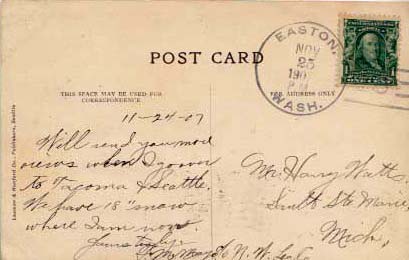 POST CARD
EASTON,
NOV
25
190
P.M.
WASH.
THIS SPACE MAY BE USED FOR
CORRESPONDENCE
FOR ADDRESS ONLY
11-24-07
Will send you mod
views when I go over
to Tacoma & Seattle.
We have 18" snow
where I am now.
Yours truly
Mr. Harry Watts,
Sault Ste Marie,
Mich,
c/o N. W.